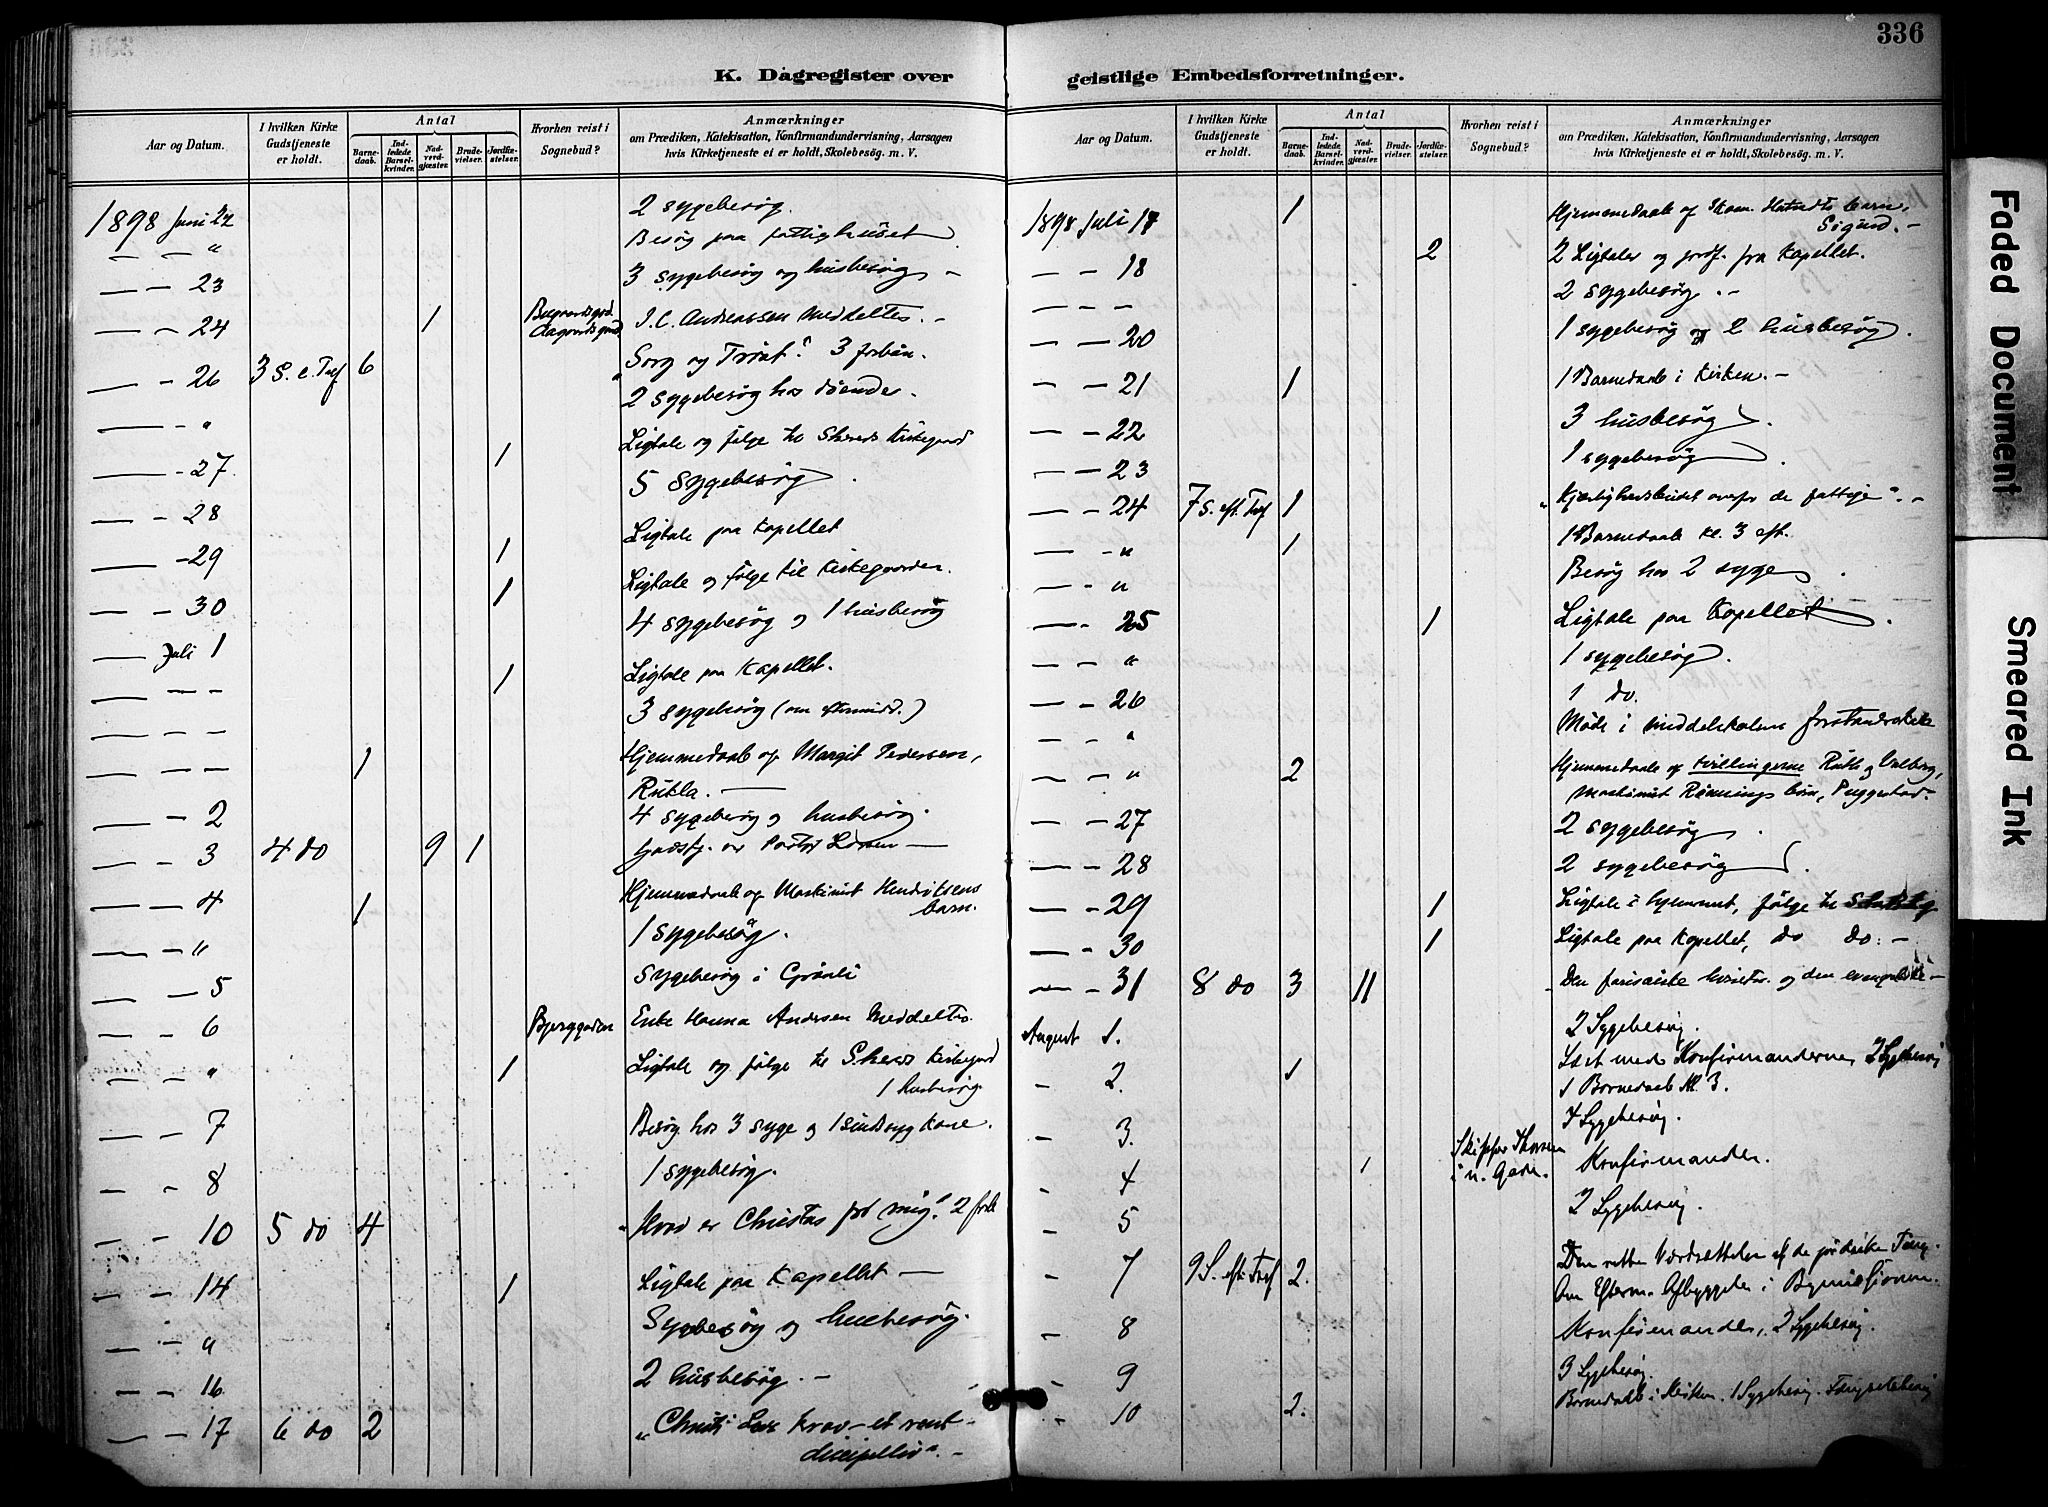 336
K. Dagregister over geistlige Embedsforretninger.
Aar og Datum.
I hvilken Kirke Gudstjeneste er holdt.
Antal
Barnedaab.
Indledede Barselkvinder.
Nadverdgjæster.
Brudevielser.
Jordfæstelser.
Hvorhen reist i Sognebud?
Anmærkninger
om Prædiken, Katekisation, Konfirmandundervisning, Aarsagen
hvis Kirketjeneste ei er holdt, Skolebesög. m. V.
1898 Juni 22 2 sygebesøg.
— — " Besøg paa fattighuset
— — 23 3 sygebesøg og husbesøg —
— — 24 1 J. C. Andreassen meddeltes. —
— — 26 3 S. e. Tref 6 "Sorg og Trøst" 3 forbøn.
— — " 2 sygebesøg hos døende.
— — 27 1 Ligtale og følge til Skeds Kirkegaard
— — 28 5 sygebesøg.
— — 29 1 Ligtale paa Kapellet
— — 30 1 Ligtale og følge til Kirkegaarden.
— Juli 1 4 sygebesøg og 1 husbesøg
— — — 1 Ligtale paa Kapellet.
— — — 3 sygebesøg (om eftermidd.)
— — — 1 Hjemmedaab af Margit Pedersen,
— — 2 4 sygebesøg og husbesøg.
— — 3 4 do 9 1
— — 4 1 Hjemmedaab af Maskinist Hendriksens
barn.
— — " 1 sygebesøg.
— — 5 Sygebesøg i Grønli
— — 6 Bjerggaden Enke Hanna Andersen meddeltes.
— — " 1 Ligtale og følge til
1 husbesøg
— — 7 Besøg hos 3 syge og 1 sindssyg Kone.
— — 8 1 sygebesøg.
— — 10 5 do 4 "Hvad er Christus for mig?" 2 forb
— — 14 1 Ligtale paa Kapellet —
— — " Sygebesøg og husbesøg.
— — 16 2 husbesøg. —
— — 17 6 do 2 "Christi Lov Krav — et sant
discipelliv". —
Aar og Datum.
I hvilken Kirke Gudstjeneste er holdt.
Antal
Barnedaab.
Indledede Barselkvinder.
Nadverdgjæster.
Brudevielser.
Jordfæstelser.
Hvorhen reist i Sognebud?
Anmærkninger
om Prædiken, Katekisation, Konfirmandundervisning, Aarsagen
hvis Kirketjeneste ei er holdt, Skolebesög. m. V.
1898 Juli 17 1 Hjemmedaab af barn,
Sigurd. —
— — 18 2 2 Ligtaler og jordf. fra Kapellet.
— — — 2 sygebesøg. —
— — 20 1 sygebesøg og 2 husbesøg.
— — 21 1 1 Barnedaab i Kirken. —
— — 22 3 husbesøg.
— — 23 1 sygebesøg.
— — 24 7 S. eft. Tref 1 "Kjærlighedsbudet overfor de fattige". —
— — " 1 1 Barnedaab kl. 3 eft.
— — " Besøg hos 2 syge.
— — 25 1 Ligtale paa Kapellet.
— — " 1 sygebesøg.
— — 26 1 do.
— — " Møde i middelskolens forstanderskab
— — " 2 Hjemmedaab af tvillingerne Ruth og Valborg,
Maskinist Rønnings børn,
— — 27 2 sygebesøg.
— — 28 2 sygebesøg.
— — 29 1 Ligtale i hjemmet, følge til
— — 30 1 Ligtale paa Kapellet, do do. —
— — 31 8 do 3 11 Den farisæiske og den evangeliske —
August 1. 2 Sygebesøg.
Læst med Konfirmanderne, 2 Sygebesøg
— 2. 1 1 Barnedaab Kl. 3.
— 3. 4 Sygebesøg.
— 4 1 Skipper i n. Gade. Konfirmander.
— 5 2 Sygebesøg.
— 7 9 S. eft. Tref 2. Den rette Værdsættelse af de jordiske Ting.
Om Efterm. i Bymissionen.
— 8 Konfirmander, 2 Sygebesøg.
— 9 3 Sygebesøg.
— 10 2. Barnedaab i Kirken. 1 Sygebesøg. Fængselsbesøg
Faded Document
Smeared Ink